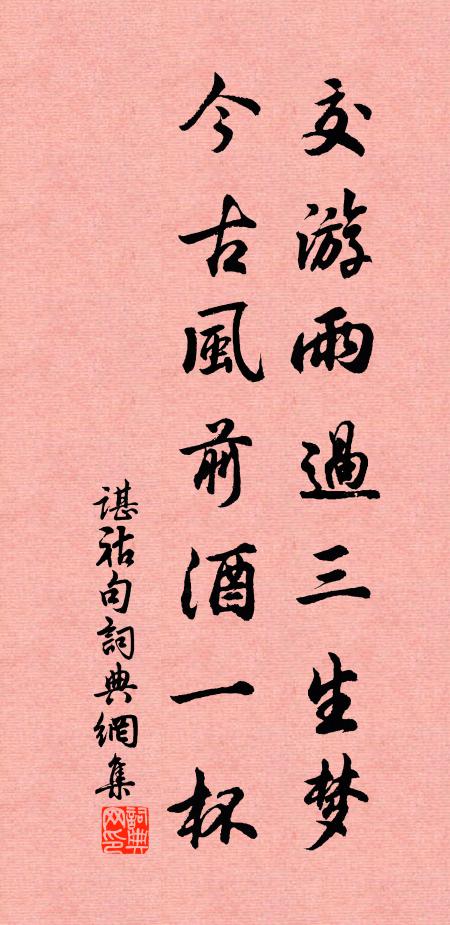 交游雨過三生梦
今古風前酒一杯
谌祜句詞典網集
詞典网印